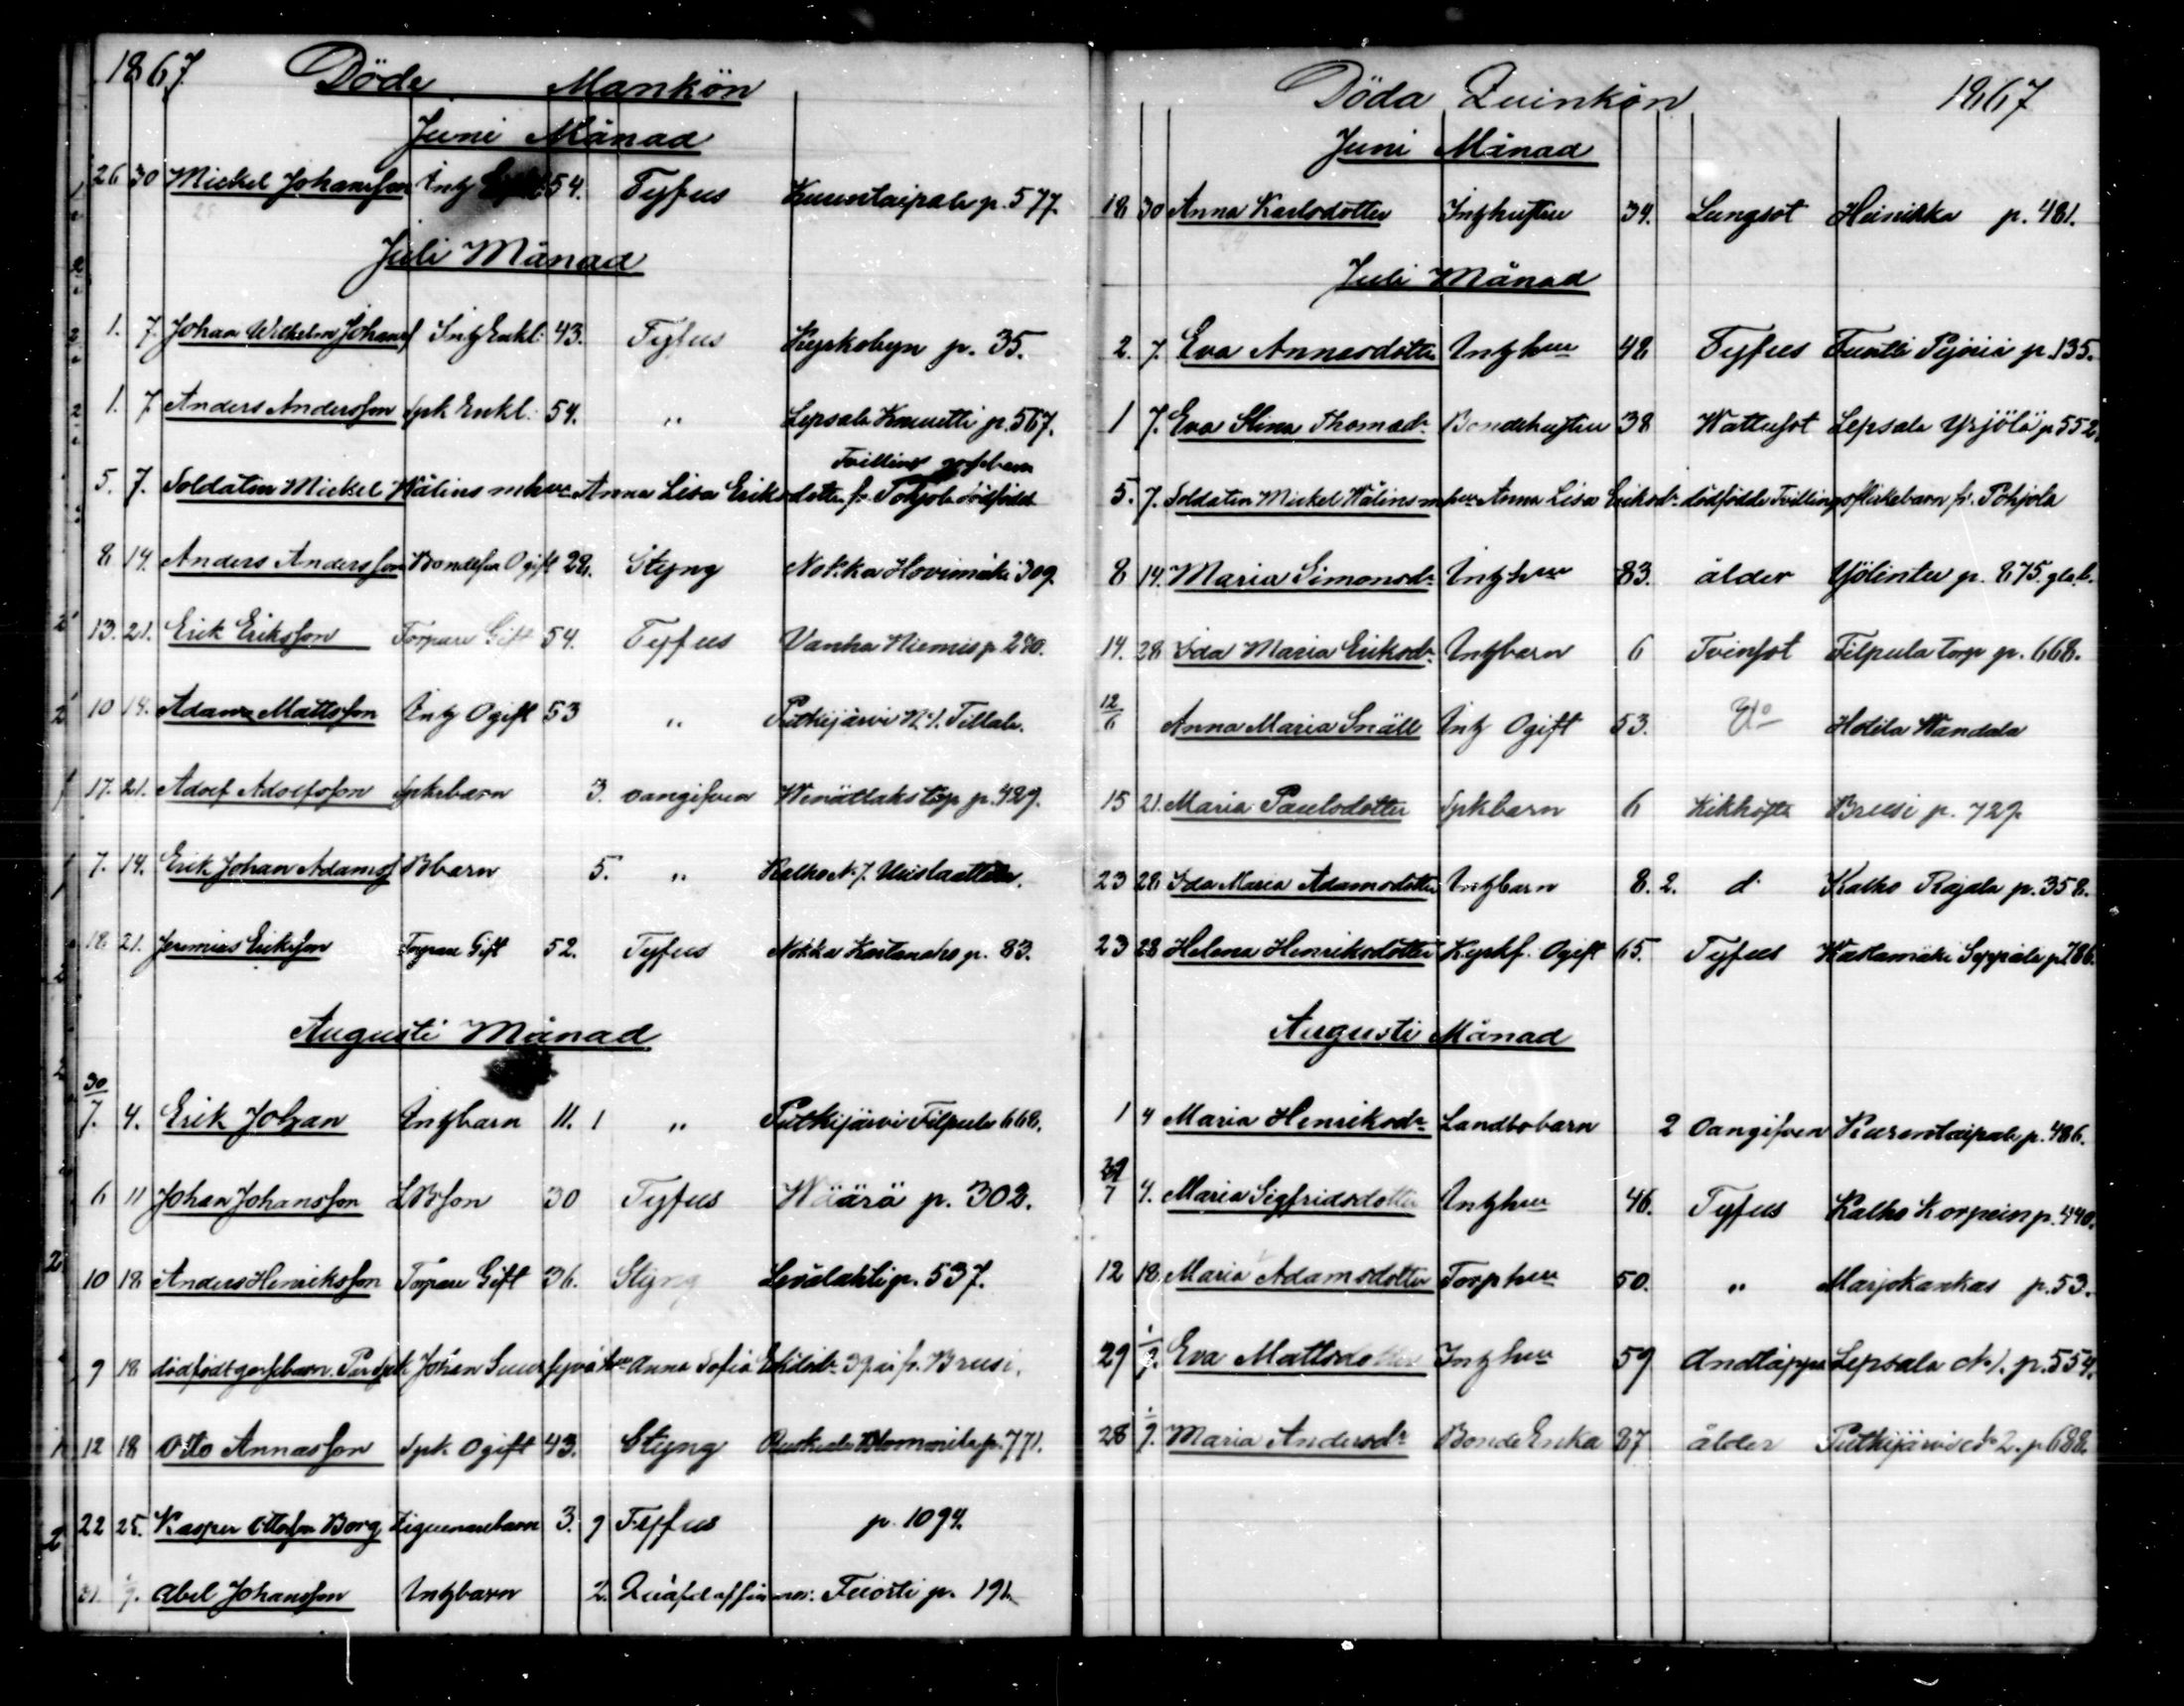 1867. Döde Mankön
Juni Månad
26 30 Mickel Johansson Inh 54. Tyfus Kuuntaipale p. 577.
Juli Månad
1. 7. Johan Wilhelm Johans Inh Enkl: 43. Tyfus Kyrkobyn p. 35.
1. 7 Anders Andersson Spk Enkl: 54. " Lepsala p. 567.
Tvilling gossebarn
5. 7. Soldaten Mickel Wälins mhu Anna Lisa Eriksdotter fr. Pohjola dödfödt
8 14. Anders Andersson Bondeson Ogift 28. Styng Nokka Hovimäki 309.
13. 21. Erik Eriksson Torpare Gift 54. Tyfus Vanha Niemis p. 280.
10 14. Adam Mattsson Inh Ogift 53 " Putkijärvi N. 1. Tillala.
17. 21. Adolf Adolfsson Spkbarn 3. oangifven torp p. 429.
7. 14. Erik Johan Adams Bbarn 5. " Kalho N. 7.
18 21. Jeremias Eriksson Torpare Gift 52. Tyfus Nokka Kartanoho p. 83.
Augusti Månad
30/7. 4. Erik Johan Inhbarn 11. 1 " Putkijärvi Filpula 668.
6 11 Johan Johansson LBson 30 Tyfus Wäärä p. 302.
10 18 Anders Henriksson Torpare Gift 36. Styng Leválahti p. 537.
9 18 dödfödt gossebarn. Par Spk Johan hu Anna Sofia 39 år fr. Brusi.
12 18 Otto Annasson Spk Ogift 43. Styng p. 771.
22 25. Kasper Ottosson Borg Ziguenarebarn 3. 9 Tyfus p. 1094.
31. 1/9. Abel Johansson Inhbarn 2. Tuosti p. 191.
Döda Quinkön 1867
Juni Månad
18 30 Anna Karlsdotter Inhhustru 34. Lungsot Heinikka p. 481.
Juli Månad
2. 7. Eva Annasdotter Inhhu 48 Tyfus Tuosti p. 135.
1 7. Eva Stina Thomasdr Bondehustru 38 Wattusot Lepsala Yrjölä p 552.
5. 7. Soldaten Mickel Wälins mhu Anna Lisa Eriksdr dödfödde Tvillingsflickebarn fr. Pohjola
8 14. Maria Simonsdr Inhhu 83. ålder Ylönter p. 875. gla. b.
14. 28 Ida Maria Eriksdr Inhbarn 6 Tvinsot Filpula torp p. 668.
12/6 Anna Maria Snäll Inh Ogift 53. Holila Wandala
15 21. Maria Paulsdotter Spkbarn 6 Kikhosta Brusi p. 729
23 28 Ida Maria Adamsdotter Inhbarn 8. 2. d Kalho Rajala p. 358.
23 28 Helena Henriksdotter Kyrkf. Ogift 65. Tyfus Wastamäki Seppälä p 786.
Augusti Månad
1 4 Maria Henriksdr Landbobarn 2 Oangifven Kurentaipale p. 486.
4. Maria Sigfridsdotter Inhhu 46. Tyfus Kalho Korpein p. 440.
12 18. Maria Adamsdotter Torphu 50. " Marjokankas p. 53.
29 1/9. Eva Mattsdotter Inhhu 59 Andtäppa Lepsala No 1. p. 554.
28 1/9. Maria Andersdr Bonde Enka 87 ålder Putkijärvi No 2. p 688.